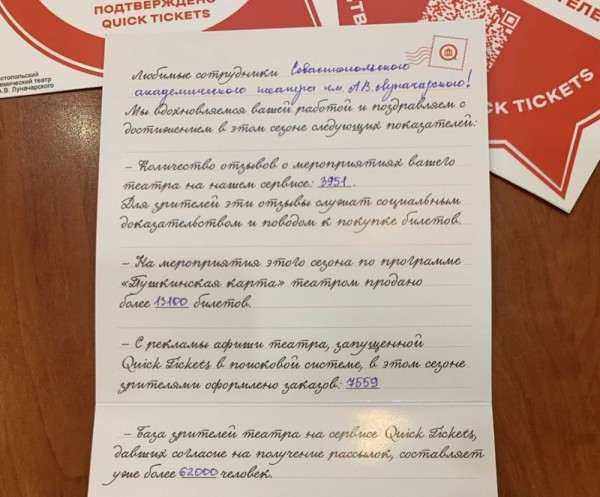 ПОДТВЕРЖДЕНО
QUICK TICKETS
QUICK TICKETS
Любимые сотрудники Севастопольского
академического театра им. А.В. Луначарского!
Мы вдохновляемся вашей работой и поздравляем с
достижением в этом сезоне следующих показателей:
– Количество отзывов о мероприятиях вашего
театра на нашем сервисе: 3951.
Для зрителей эти отзывы служат социальным
доказательством и поводом к покупке билетов.
– На мероприятия этого сезона по программе
«Пушкинская карта» театром продано
более 13100 билетов.
– С рекламы афиши театра, запущенной
Quick Tickets в поисковой системе, в этом сезоне
зрителями оформлено заказов: 7559
– База зрителей театра на сервисе Quick Tickets,
давших согласие на получение рассылок, составляет
уже более 62000 человек.